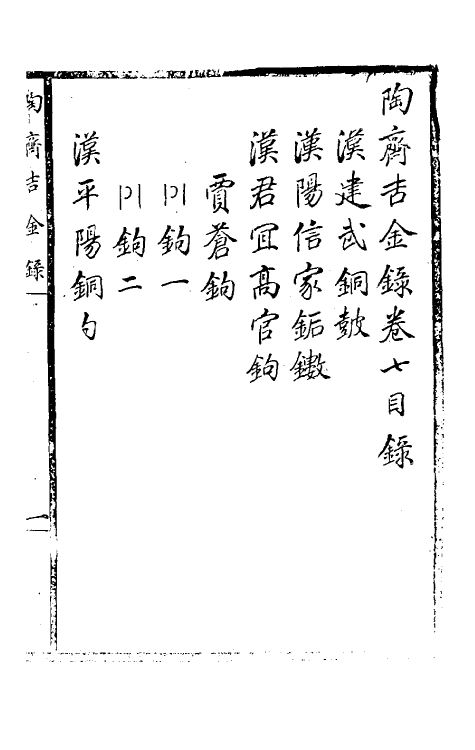 陶齋吉金錄卷七目錄
漢建武銅鼓
漢陽信家銗鏤
漢君宜高官鉤
賈蒼鉤
鉤一
鉤二
漢平陽銅勺
陶齋吉金錄
一